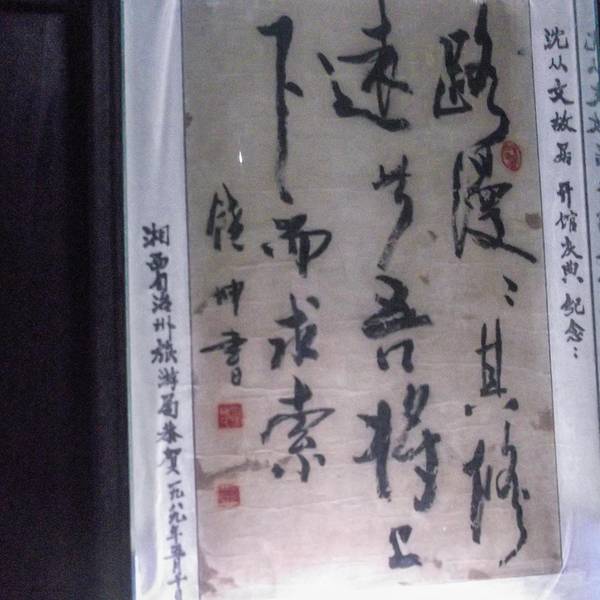 沈从文故居开馆庆典纪念:
路漫:其修
远兮吾将上
下而求索
饶坤书
湘西自治州旅游局恭贺一九八九年五月十日